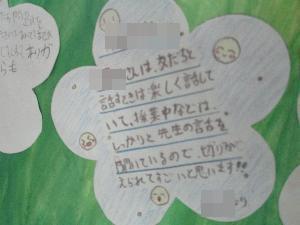 さんは、友だちと
話すときは楽しく話して
いて、授業中などは、
しっかりと先生の話を
聞いているので、切りか
えられてすごいと思います!!
より